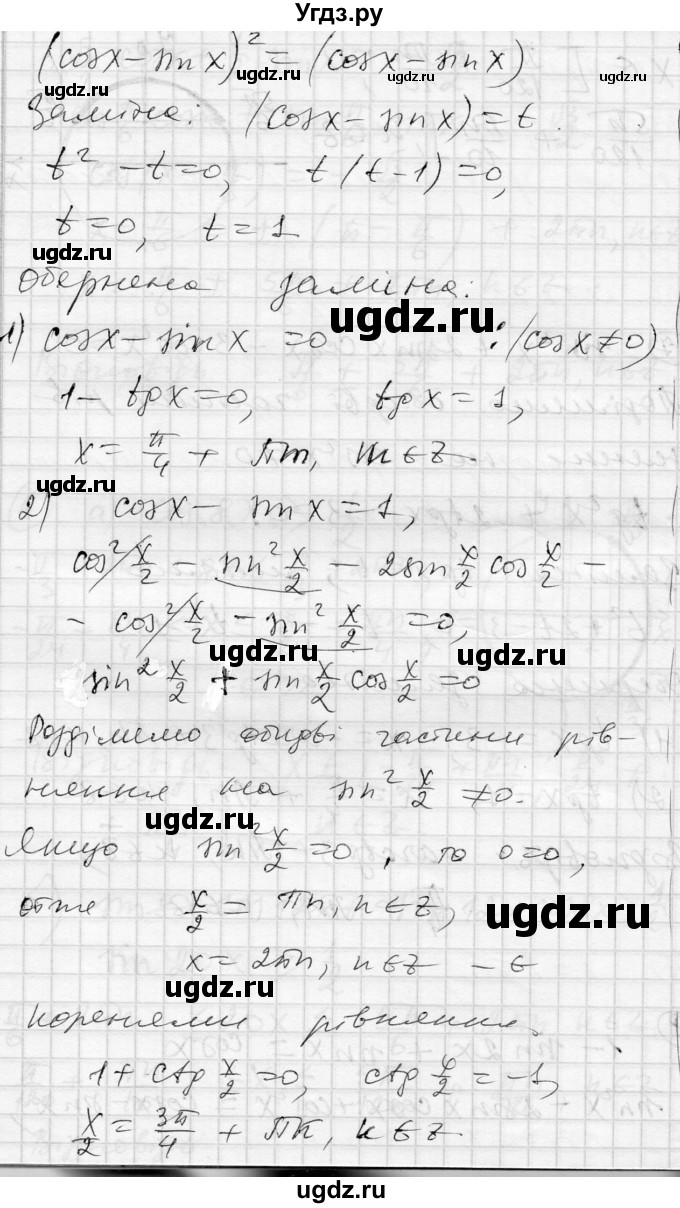 Угдз.ру
(cos x - sin x)² = (cos x - sin x)
Заміна: (cos x - sin x) = t.
t² - t = 0, t(t - 1) = 0,
t = 0, t = 1
обернена заміна:
1) cos x - sin x = 0 : (cos x ≠ 0)
1 - tg x = 0, tg x = 1,
x = π/4 + πm, m ∈ Z.
2) cos x - sin x = 1,
cos² x/2 - sin² x/2 - 2 sin x/2 cos x/2 -
- cos² x/2 - sin² x/2 = 0,
sin² x/2 + sin x/2 cos x/2 = 0
Розділимо обидві частини рів-
няння на sin² x/2 ≠ 0.
Якщо sin² x/2 = 0, то 0 = 0,
отже x/2 = πn, n ∈ Z,
x = 2πn, n ∈ Z - є
коренями рівняння.
1 + ctg x/2 = 0, ctg x/2 = -1,
x/2 = 3π/4 + πk, k ∈ Z.
ugdz.ru
ugdz.ru
ugdz.ru
ugdz.ru
ugdz.ru
ugdz.ru
ugdz.ru
ugdz.ru
ugdz.ru
ugdz.ru
ugdz.ru